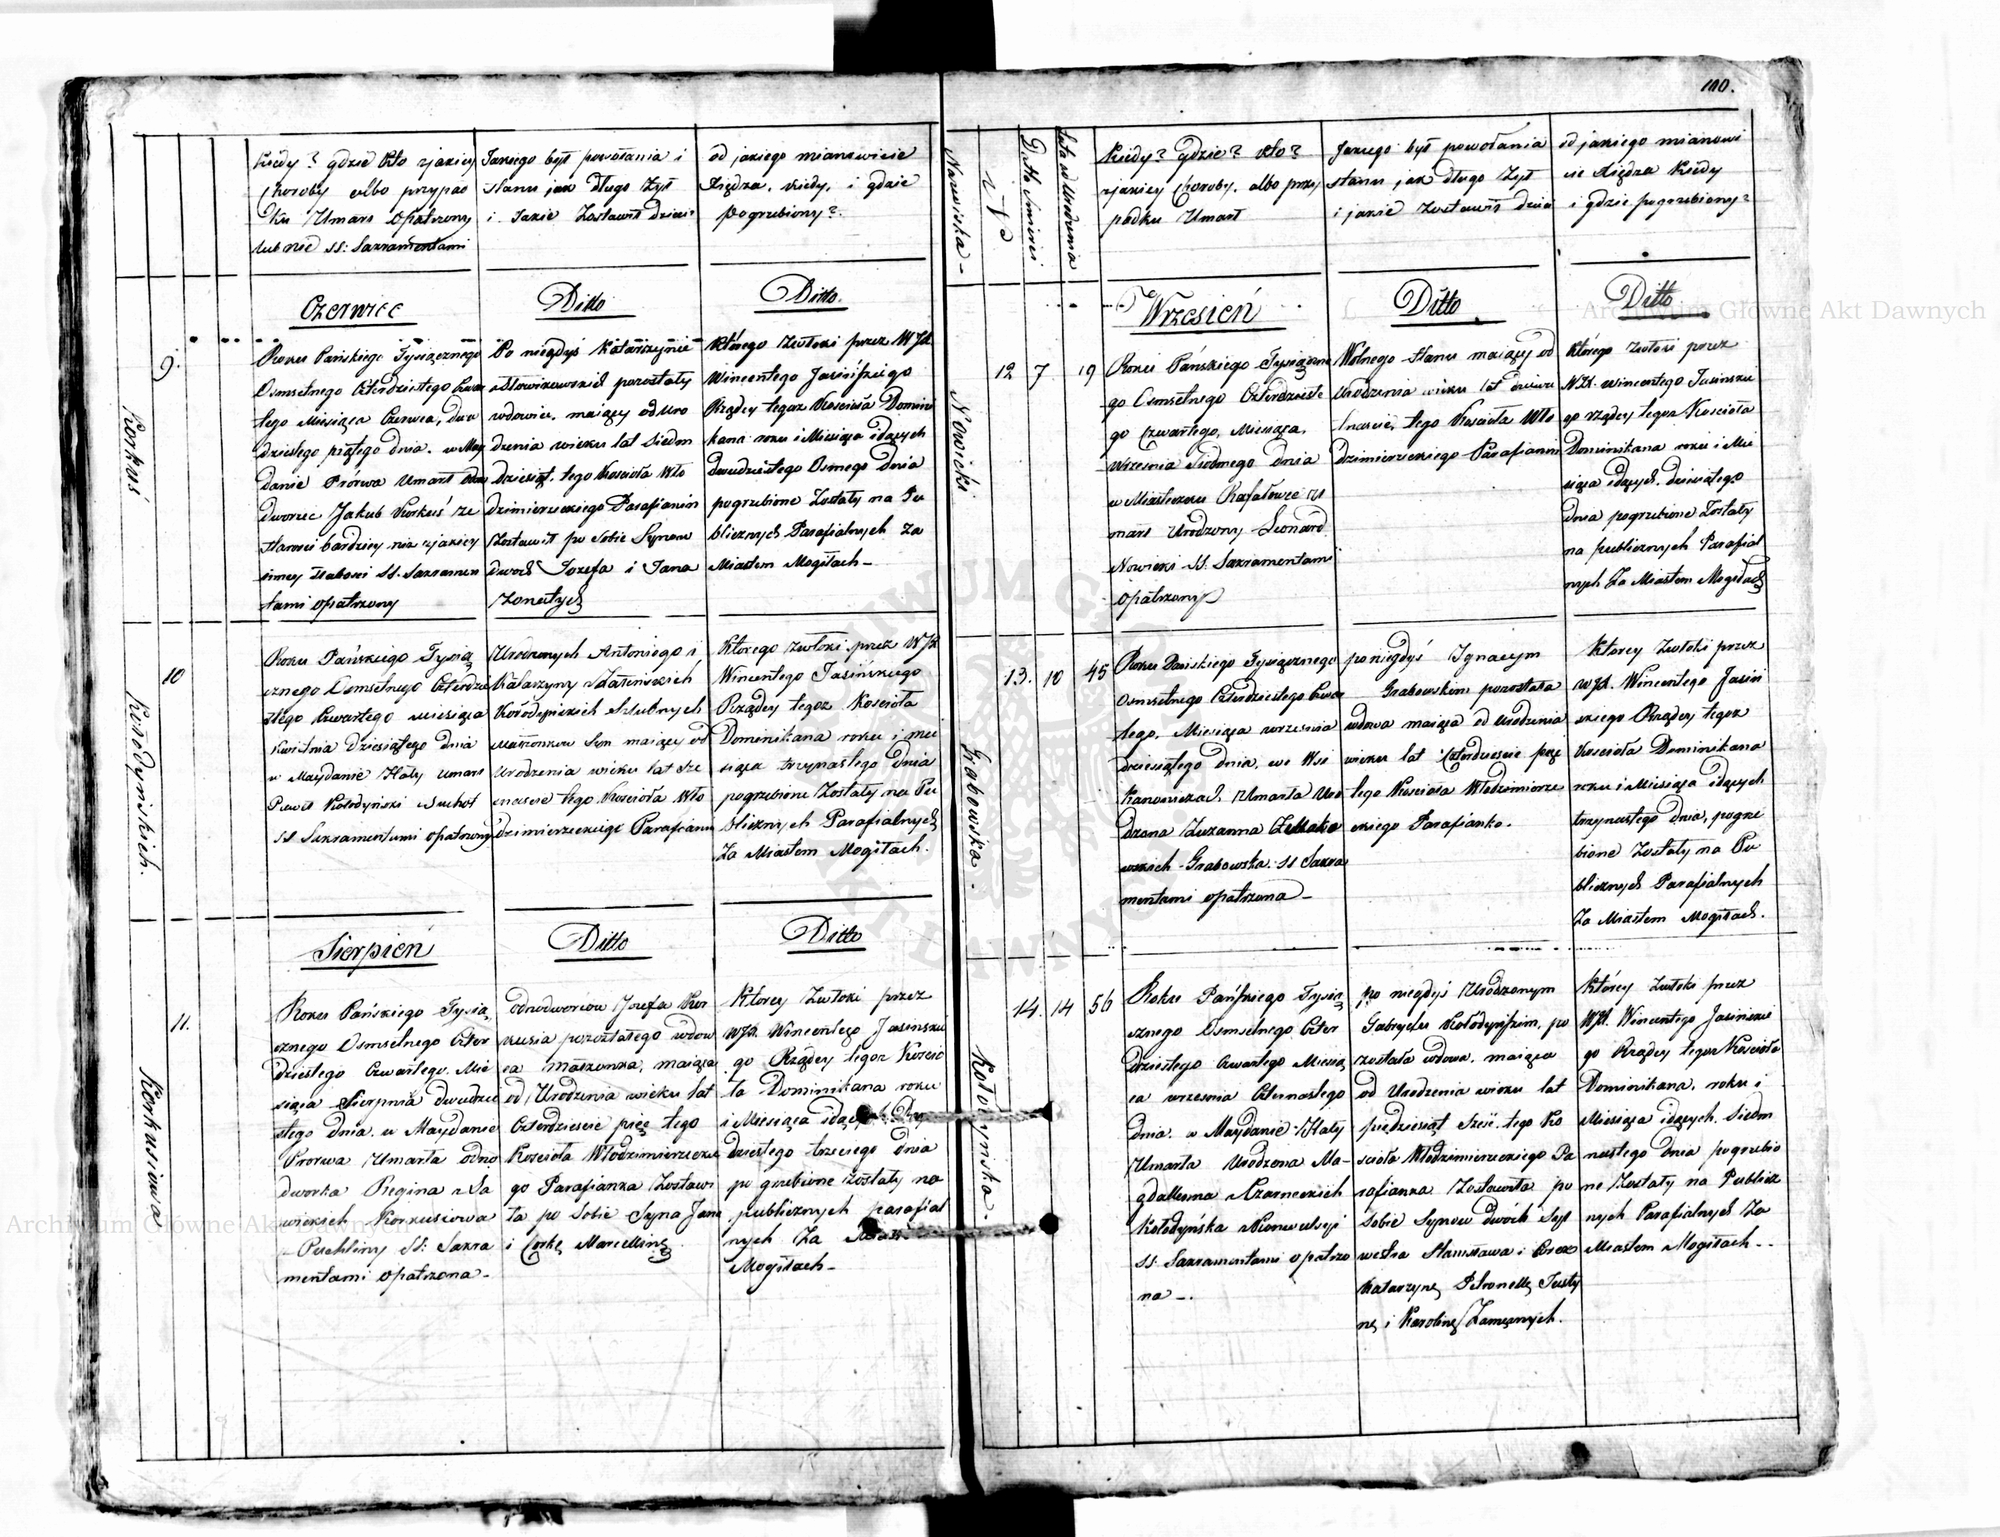 110.
Kiedy? gdzie kto zjakiey
Choroby albo przypad
ku Umarł Opatrzony
lub nie SS: Sakramentami
Jakiego był powołania i
stanu jak długo żył
i Jakie Zostawił dzieci
od jakiego mianowicie
Xiędza, kiedy, i gdzie
pogrzebiony?
Czerwiec
Ditto
Ditto.
9.
Korkuś
Roku Pańskiego Tysiącznego
Osmsetnego Czterdziestego Czwar
tego Miesiąca Czerwca, dwu
dziestego piątego dnia. w May
danie Prorwa Umarł Odno
dworzec Jakub Korkuś ze
starości bardziey nie zjakiey
inney słabości SS. Sakramen
tami opatrzony
Po niegdyś Katarzynie
Słowikowskich pozostały
wdowiec, maiący od Uro
dzenia wieku lat siedm
dziesiąt, tego Kościoła Wło
dzimierzeckiego Parafianin
Zostawił po sobie Synów
dwóch Jozefa i Jana
żonatych
Którego zwłoki przez WJX
Wincentego Jasińskiego
Rządcę tegoz Kościoła Domini
kana roku i Miesiąca idących
dwudziestego Osmego dnia
pogrzebione Zostały na Pu
blicznych Parafialnych za
Miastem Mogiłach -
10
Kołodyńskich.
Roku Pańskiego Tysią
cznego Osmsetnego Czterdzie
stego Czwartego Miesiąca
Kwietnia dziesiątego dnia
w Maydanie Hały Umarł
Paweł Kołodyński Suchot
SS Sakramentami opatrzony
Urodzonych Antoniego i
Katarzyny
Kołodyńskich Szlubnych
Małżonków Syn maiący od
Urodzenia wieku lat sze
snaście tego Kościoła Wło
dzimierzeckiego Parafianin
Którego zwłoki przez WJX
Wincentego Jasińskiego
Rządcę tegoz Kościoła
Dominikana roku i mie
siąca trzynastego dnia
pogrzebione Zostały na Pu
blicznych Parafialnych
Za Miastem Mogiłach.
Sierpień
Ditto
Ditto
11.
Korkusiowa
Roku Pańskiego Tysią
cznego Osmsetnego Czter
dziestego Czwartego. Mie
siąca Sierpnia dwudzie
stego dnia. w Maydanie
Prorwa Umarła odno
dworka Regina Sa
wickich Korkusiowa
Puchliny SS: Sakra
mentami opatrzona -
odnodworców Jozefa Kor
kusia pozostałego wdow
ca małżonka, maiąca
od Urodzenia wieku lat
Czterdzieście pięć tego
Kościoła Włodzimierzeckie
go Parafianka Zostawi
ła po Sobie Syna Jana
i Corkę Marcellinę
Ktorey Zwłoki przez
WJX. Wincentego Jasińskie
go Rządcę tegoz Kościo
ła Dominikana roku
i Miesiąca idących Dwu
dziestego trzeciego dnia
po grzebione zostały na
publicznych parafial
nych Za
Mogiłach -
Nowicka -
N
Data Śmierci
Lata od Urodzenia
Kiedy? gdzie? kto?
zjakiey Choroby, albo przy
padku Umarł
Jakiego był powołania
stanu jak długo żył
i jakie zostawił dzieci
od jakiego mianowi
cie Xiędza Kiedy
i gdzie pogrzebiony?
Wrzesień
Ditto
Ditto
Nowicki
12 7 19
Roku Pańskiego Tysiączne
go Osmsetnego Czterdzieste
go Czwartego, Miesiąca,
Września Siódmego dnia
w Miasteczku Rafałowce U
marł Urodzony Leonard
Nowicki SS. Sakramentami
opatrzony
Wolnego stanu maiący od
Urodzenia wieku lat dziewię
tnaście, tego Kościoła Wło
dzimierzeckiego Parafianin
Którego zwłoki przez
WJX. Wincentego Jasińskie
go rządcę tegoz Kościoła
Dominikana roku i Mie
siąca idących. dziewiątego
dnia pogrzebione Zostały
na publicznych Parafial
nych Za Miastem Mogiłach
Grabowska.
13. 10 45
Roku Pańskiego Tysiącznego
Osmsetnego Czterdziestego Czwar
tego, Miesiąca września
dziesiątego dnia, we Wsi
Umarła Uro
dzona Zuzanna
Grabowska. SS Sakra
mentami opatrzona -
po niegdyś Ignacym
Grabowskim pozostała
wdowa maiąca od Urodzenia
wieku lat Czterdzieście pięć
tego Kościoła Włodzimierze
ckiego Parafianka.
Ktorey Zwłoki przez
WJX. Wincentego Jasiń
skiego Rządcę tegoz
Kościoła Dominikana
roku i Miesiąca idących
trzynastego dnia, pogrze
bione Zostały na Pu
blicznych Parafialnych
Za Miastem Mogiłach.
Kołodyńska.
14. 14 56
Roku Pańskiego Tysią
cznego Osmsetnego Czter
dziestego Czwartego Miesią
ca września Czternastego
dnia. w Maydanie Hały
Umarła Urodzona Ma-
gdalena Czarneckich
Kołodyńska Konwulsyi
SS: Sakramentami opatrzo
na -.
po niegdyś Urodzonym
Gabryelu Kołodyńskim, po
została wdowa, maiąca
od Urodzenia wieku lat
piędziesiąt sześć. tego Ko
ścioła Włodzimierzeckiego Pa
rafianka Zostawiła po
Sobie Synów dwóch Syl
westra Stanisława i Corek
Katarzynę Petronellę Justy
nę i Karolinę Zamężnych.
Którey Zwłoki przez
WJX. Wincentego Jasińskie
go Rządcę tegoz Kościoła
Dominikana, roku i
Miesiąca idących. Siedm
nastego dnia pogrzebio
ne Zostały na Publicz
nych Parafialnych Za
Miastem Mogiłach -.
Archiwum Główne Akt Dawnych